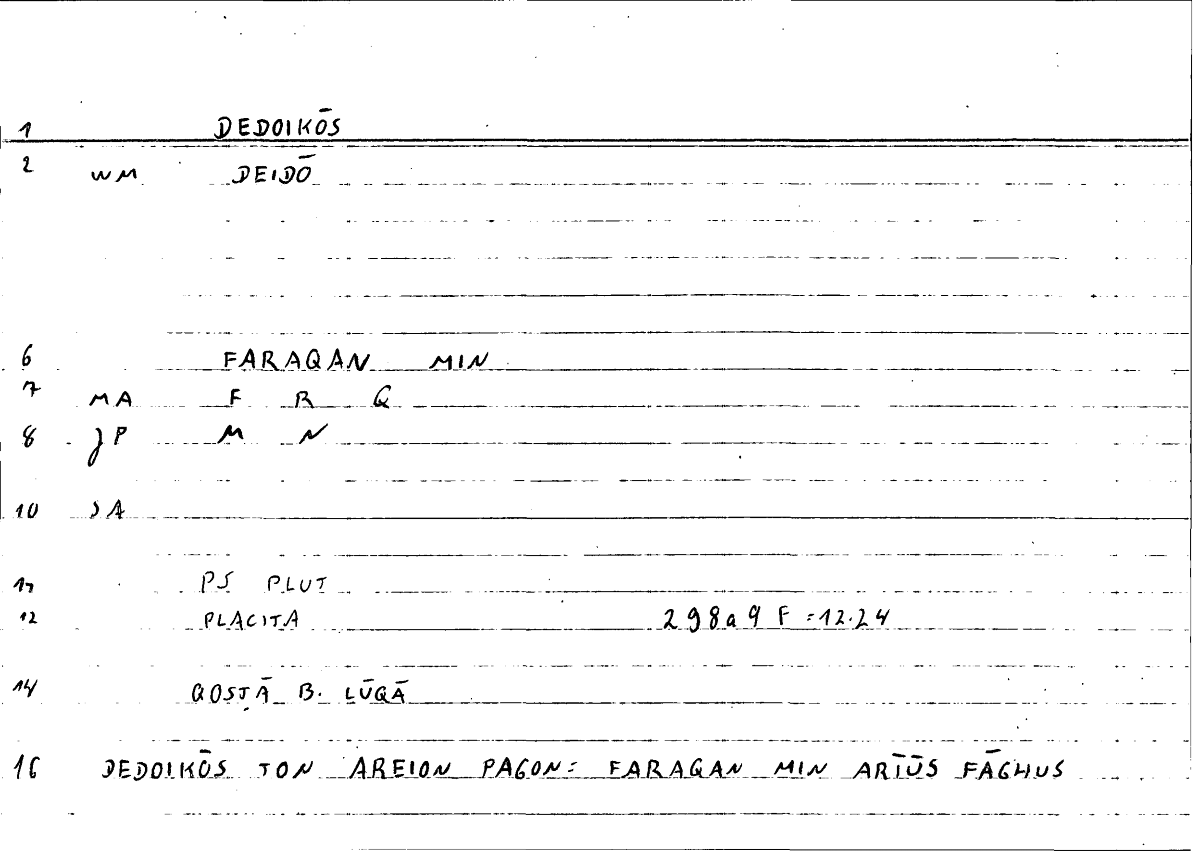 1 DEDOIKŌS
2 WM DEIDŌ
6 FARAQAN MIN
7 MA F R Q
8 JP M N
10 SA
11 PS PLUT
12 PLACITA 298a9 F =12.24
14 QOSṬĀ B. LŪQĀ
16 DEDOIKŌS TON AREION PAGON: FARAQAN MIN ARĪŪS FĀGHUS